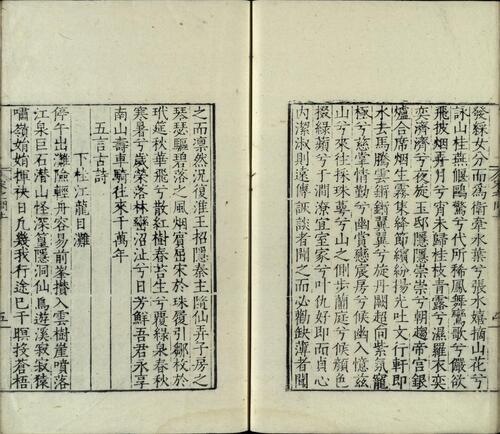 發綵女分而為衛牽水葉兮張水嬉摘山花兮
詠山桂燕偓鷗驚兮代所稀鳳舞鸞歌兮儼欲
飛披烟弄月兮宵未歸桂枝青露兮濕羅衣奕
奕濟濟兮夜旋玉邸隱隱崇崇兮朝趨帝宮銀
爐合席烟生霧集絳節繽紛揚光吐文行軒即
水去馬騰雲鏘鏘翼翼兮旋丹闕超向紫氛寵
極兮慈堂情勤兮幽賞戀宸居兮候幽入憶茲
山兮來往採珠蕚兮山之側步蘭庭兮候顏色
掇綠蘋兮于澗潦宜室家兮叶仇好即而貞心
內潔淑則遠傳訞談者聞之而必勸缺薄者聞
之而凛然況復淮王招隱秦主陞仙弄子房之
琴瑟驅碧落之風烟賓屈宋於珠履引鄒枚於
玳筵秋華飛兮散紅樹春苔生兮覆綠泉春秋
寒暑兮歲榮落林巒沼沚兮日芳鮮吾君永享
南山壽車騎往來千萬年
五言古詩
下桂江龍目灘
停午出灘險輕舟容易前峯攢入雲樹崖噴落
江泉巨石潛山怪深篁隱洞仙鳥遊溪寂寂猿
嘯嶺娟娟揮袂日凡幾我行途已千暝投蒼梧
五